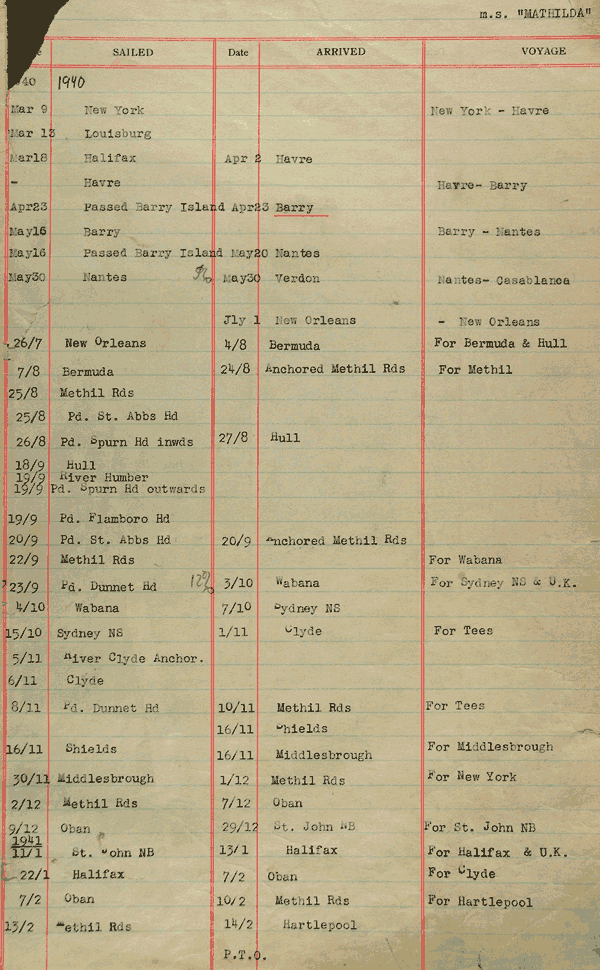 m.s. "MATHILDA"
SAILED Date ARRIVED VOYAGE
1940
Mar 9 New York New York - Havre
Mar 13 Louisburg
Mar18 Halifax Apr 2 Havre
- Havre Havre- Barry
Apr23 Passed Barry Island Apr23 Barry
May16 Barry Barry - Nantes
May16 Passed Barry Island May20 Nantes
May30 Nantes May30 Verdon Nantes- Casablanca
Jly 1 New Orleans - New Orleans
26/7 New Orleans 4/8 Bermuda For Bermuda & Hull
7/8 Bermuda 24/8 Anchored Methil Rds For Methil
25/8 Methil Rds
25/8 Pd. St. Abbs Hd
26/8 Pd. Spurn Hd inwds 27/8 Hull
18/9 Hull
19/9 River Humber
19/9 Pd. Spurn Hd outwards
19/9 Pd. Flamboro Hd
20/9 Pd. St. Abbs Hd 20/9 Anchored Methil Rds
22/9 Methil Rds For Wabana
23/9 Pd. Dunnet Hd 3/10 Wabana For Sydney NS & U.K.
4/10 Wabana 7/10 Sydney NS
15/10 Sydney NS 1/11 Clyde For Tees
5/11 River Clyde Anchor.
6/11 Clyde
8/11 Pd. Dunnet Hd 10/11 Methil Rds For Tees
16/11 Shields
16/11 Shields 16/11 Middlesbrough For Middlesbrough
30/11 Middlesbrough 1/12 Methil Rds For New York
2/12 Methil Rds 7/12 Oban
9/12 Oban 29/12 St. John NB For St. John NB
1941
11/1 St. John NB 13/1 Halifax For Halifax & U.K.
22/1 Halifax 7/2 Oban For Clyde
7/2 Oban 10/2 Methil Rds For Hartlepool
13/2 Methil Rds 14/2 Hartlepool
P.T.O.